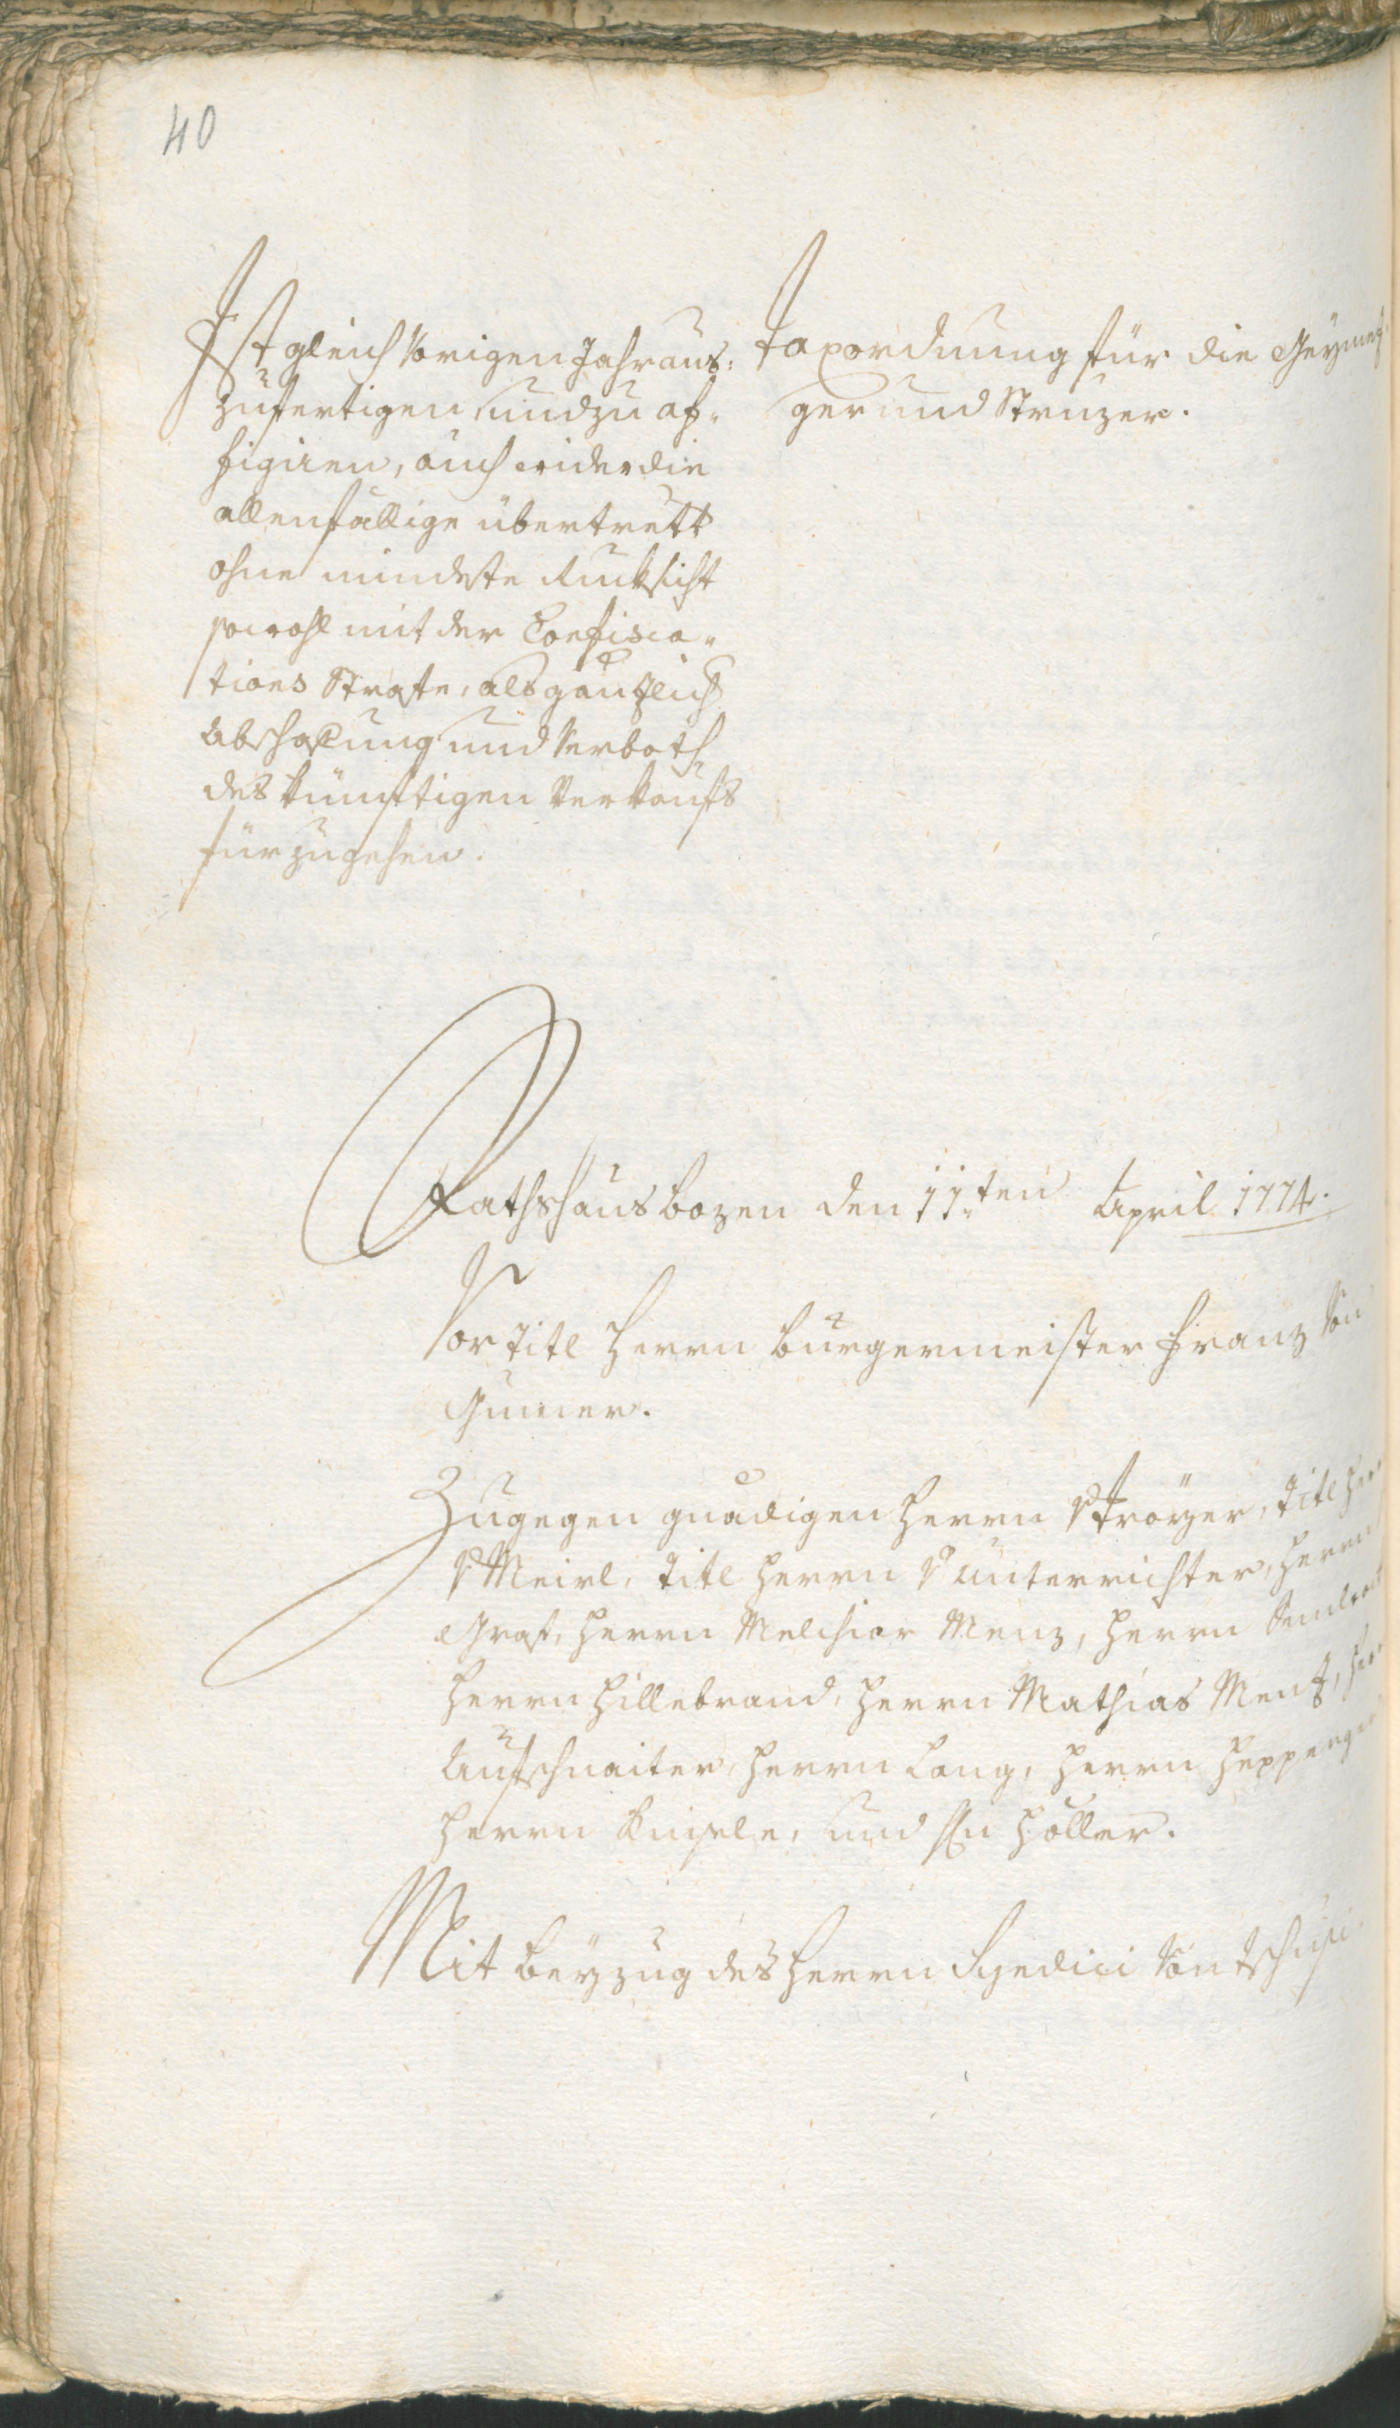 40
Ist gleich vorigen Jahr aus-
zufertigen und zu af-
figiren, auch wider die
allenfällige übertrett
ohne mindeste Rucksicht
sowohl mit der Confisca-
tions Strafe, als gänzlich
Abschaffung und Verboth
des künftigen Verkaufs
fürzugehen.
Taxordnung für die Geymez
ger und Struzer.
Rathshaus Bozen den 11ten April 1774.
Vor Titl Herrn Burgermeister Franz von
Gumer.
Zugegen gnädigen Herrn v Tröyer, Titl Herr
v Meirl, Titl Herrn v Unterrichter, Herrn
Graf, Herrn Melchior Menz, Herrn
Herrn Hillebrand, Herrn Mathias Menz, Her
Aufschnaiter, Herrn Lang, Herrn Hepperger
Herrn Knisele, und Hn Holler.
Mit beyzug des Herrn Syndici von Tschusi